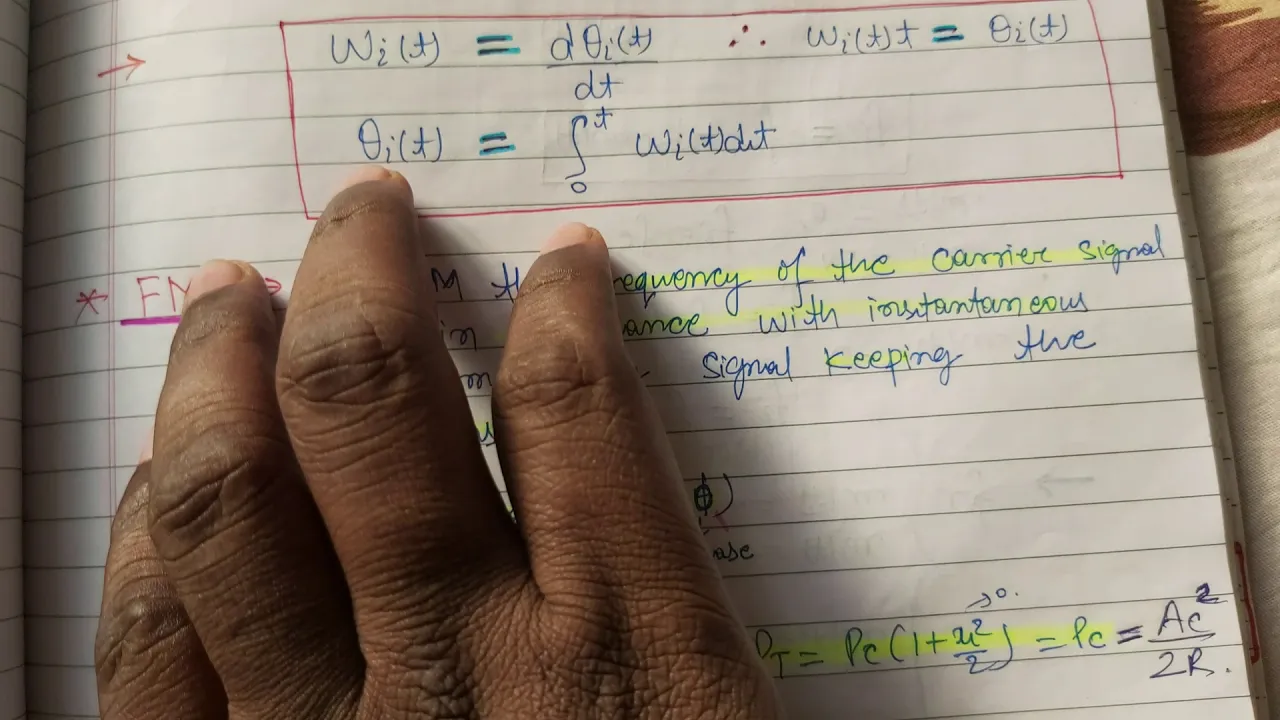 → ωᵢ(t) = dθᵢ(t)/dt ∴ ωᵢ(t)t = θᵢ(t)
θᵢ(t) = ∫₀ᵗ ωᵢ(t)dt =
* FM
equency of the carrier signal
in ance with instantaneous
signal keeping the
ϕ)
ase
→0.
P_T = Pc(1+u²/2) = Pc = Ac²/2R.